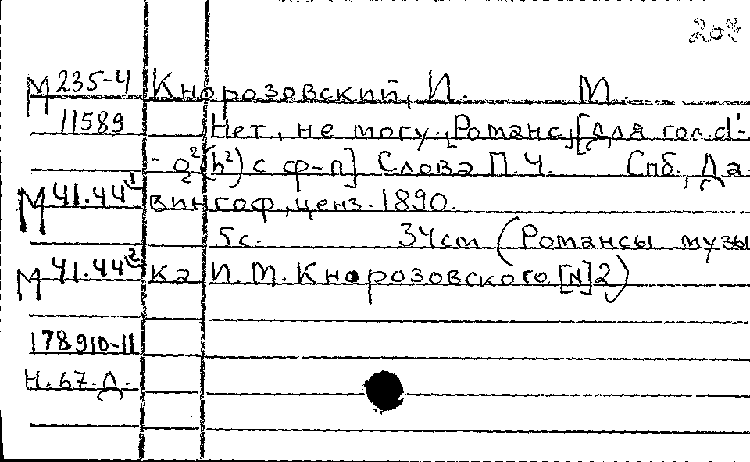 208
М 235-4 Кнорозовский, И. М.
11589 Нет, не могу. [Романс] [для гол. d'-
-g² (h²) с ф-п] Слова П. Ч. Спб., Да
М 41.44¹ вингоф, ценз. 1890.
5 с. 34 cm (Романсы музы
М 41.44² ка И. М. Кнорозовского [N] 2)
178.910-11
Н. 67. Д.